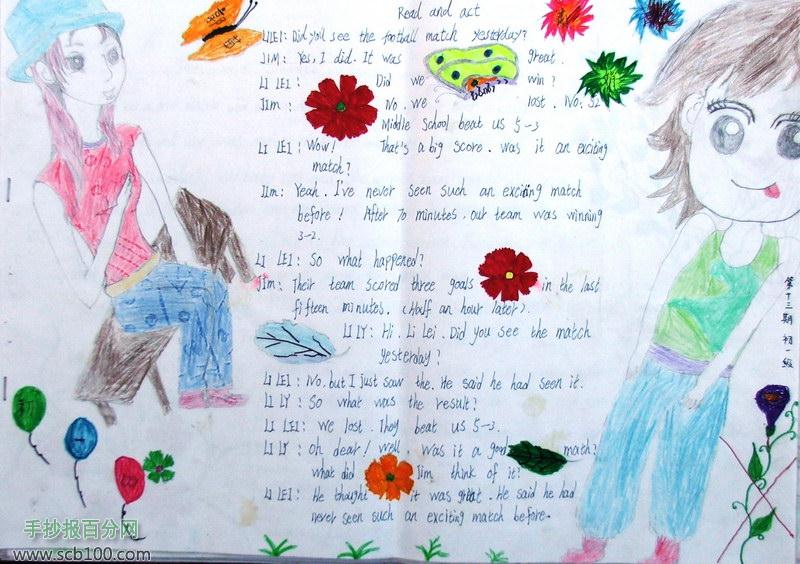 Read and act
LI LEI: Did you see the football match yesterday?
JIM: Yes, I did. It was great.
LI LEI: Did we win?
Jim: No. we lost. No. 32
Middle School beat us 5-3
LI LEI: Wow! That's a big score. was it an exciting
match?
Jim: Yeah. I've never seen such an exciting match
before! After 70 minutes. our team was winning
3-2.
LI LEI: So what happened?
Jim: Their team scored three goals in the last
fifteen minutes. (Half an hour later).
LI LY: Hi. Li Lei. Did you see the match
yesterday?
LI LEI: No. but I just saw the. He said he had seen it.
LI LY: So what was the result?
LI LEI: We lost. They beat us 5-3.
LI LY: Oh dear! well, was it a good math?
what did Jim think of it?
LI LEI: He thought it was great. He said he had
never seen such an exciting match before.
第十三期 初一级
手抄报百分网
www.scb100.com